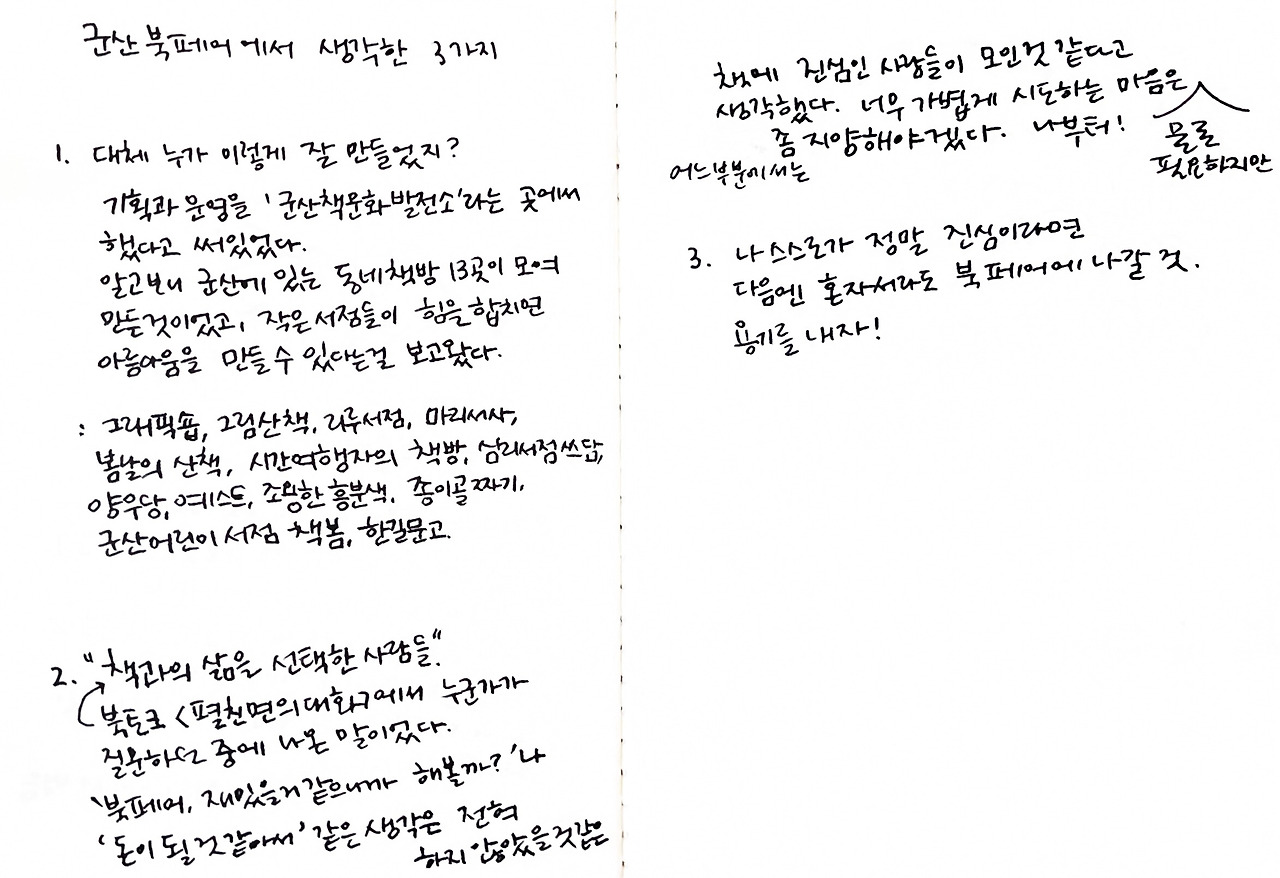 군산 북페어에서 생각한 3가지
1. 대체 누가 이렇게 잘 만들었지?
기획과 운영을 '군산책문화발전소'라는 곳에서
했다고 써있었다.
알고보니 군산에 있는 동네책방 13곳이 모여
만든것이었고, 작은서점들이 힘을 합치면
아름다움을 만들 수 있다는걸 보고왔다.
: 그래픽숍, 그림산책, 리루서점, 마리서사,
봄날의 산책, 시간여행자의 책방, 심리서점쓰담,
양우당, 예스트, 조용한흥분색, 종이골짜기,
군산어린이서점 책봄, 한길문고.
2. "책과의 삶을 선택한 사람들"
북토크 <펼친면의대화>에서 누군가가
질문하던 중에 나온 말이었다.
'북페어, 재밌을거같으니까 해볼까?'나
'돈이 될 것 같아서' 같은 생각은 전혀
하지 않았을 것같은
책에 진심인 사람들이 모인것 같다고
생각했다. 너무 가볍게 시도하는 마음은
물론
필요하지만
어느부분에서는
좀 지양해야겠다. 나부터!
3. 나 스스로가 정말 진심이라면
다음엔 혼자서라도 북페어에 나갈 것.
용기를 내자!